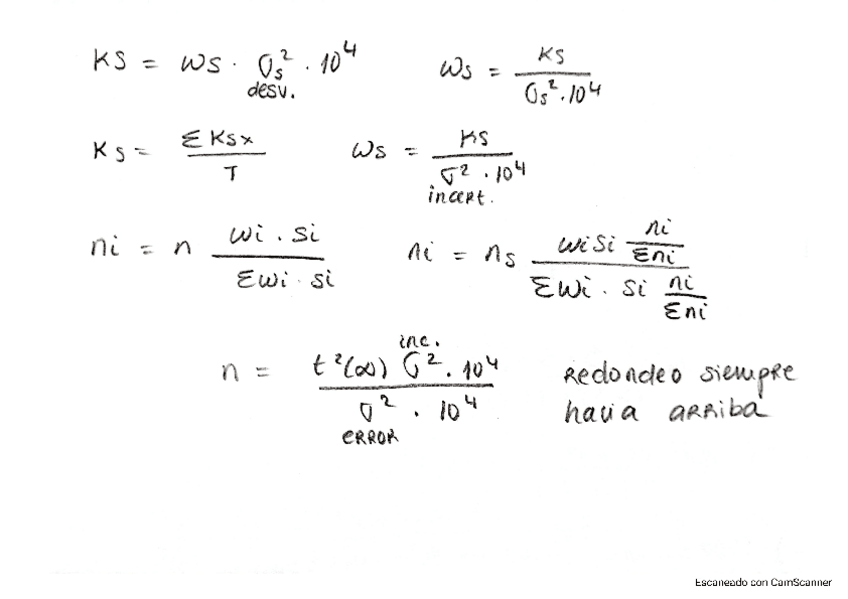 KS = WS · σs² · 10⁴    Ws = KS / σs² · 10⁴
desv.
Ks = ΣKsx / T    Ws = KS / σ² · 10⁴
incert.
ni = n Wi · Si / ΣWi · Si    ni = ns WiSi ni/Σni / ΣWi · Si ni/Σni
inc.
n = t²(∞) σ² · 10⁴ / σ² · 10⁴    Redondeo siempre
hacia arriba
ERROR
Escaneado con CamScanner